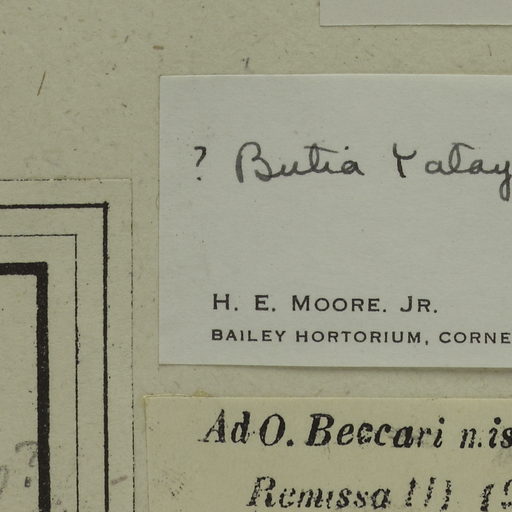 ? Butia Yatay
H. E. MOORE. JR.
BAILEY HORTORIUM, CORNE
Ad O. Beccari n.is
Remissa
?